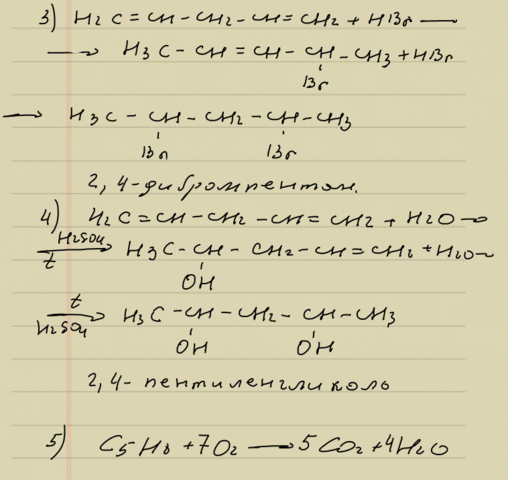 3) H₂C=CH-CH₂-CH=CH₂ + HBr —
→ H₃C-CH=CH-CH-CH₃ + HBr
Br
→ H₃C-CH-CH₂-CH-CH₃
Br Br
2,4-дибромпентан.
4) H₂C=CH-CH₂-CH=CH₂ + H₂O →
H₂SO₄
t
→ H₃C-CH-CH₂-CH=CH₂ + H₂O →
OH
t
H₂SO₄
→ H₃C-CH-CH₂-CH-CH₃
OH OH
2,4-пентиленгликоль
5) C₅H₈ + 7O₂ → 5CO₂ + 4H₂O